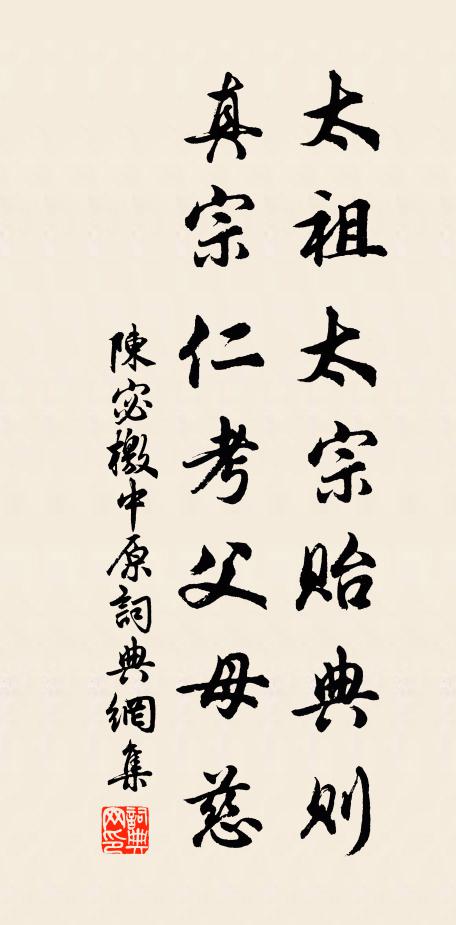 太祖太宗貽典則
真宗仁考父母慈
陳宓檄中原詞典網集
詞典网印